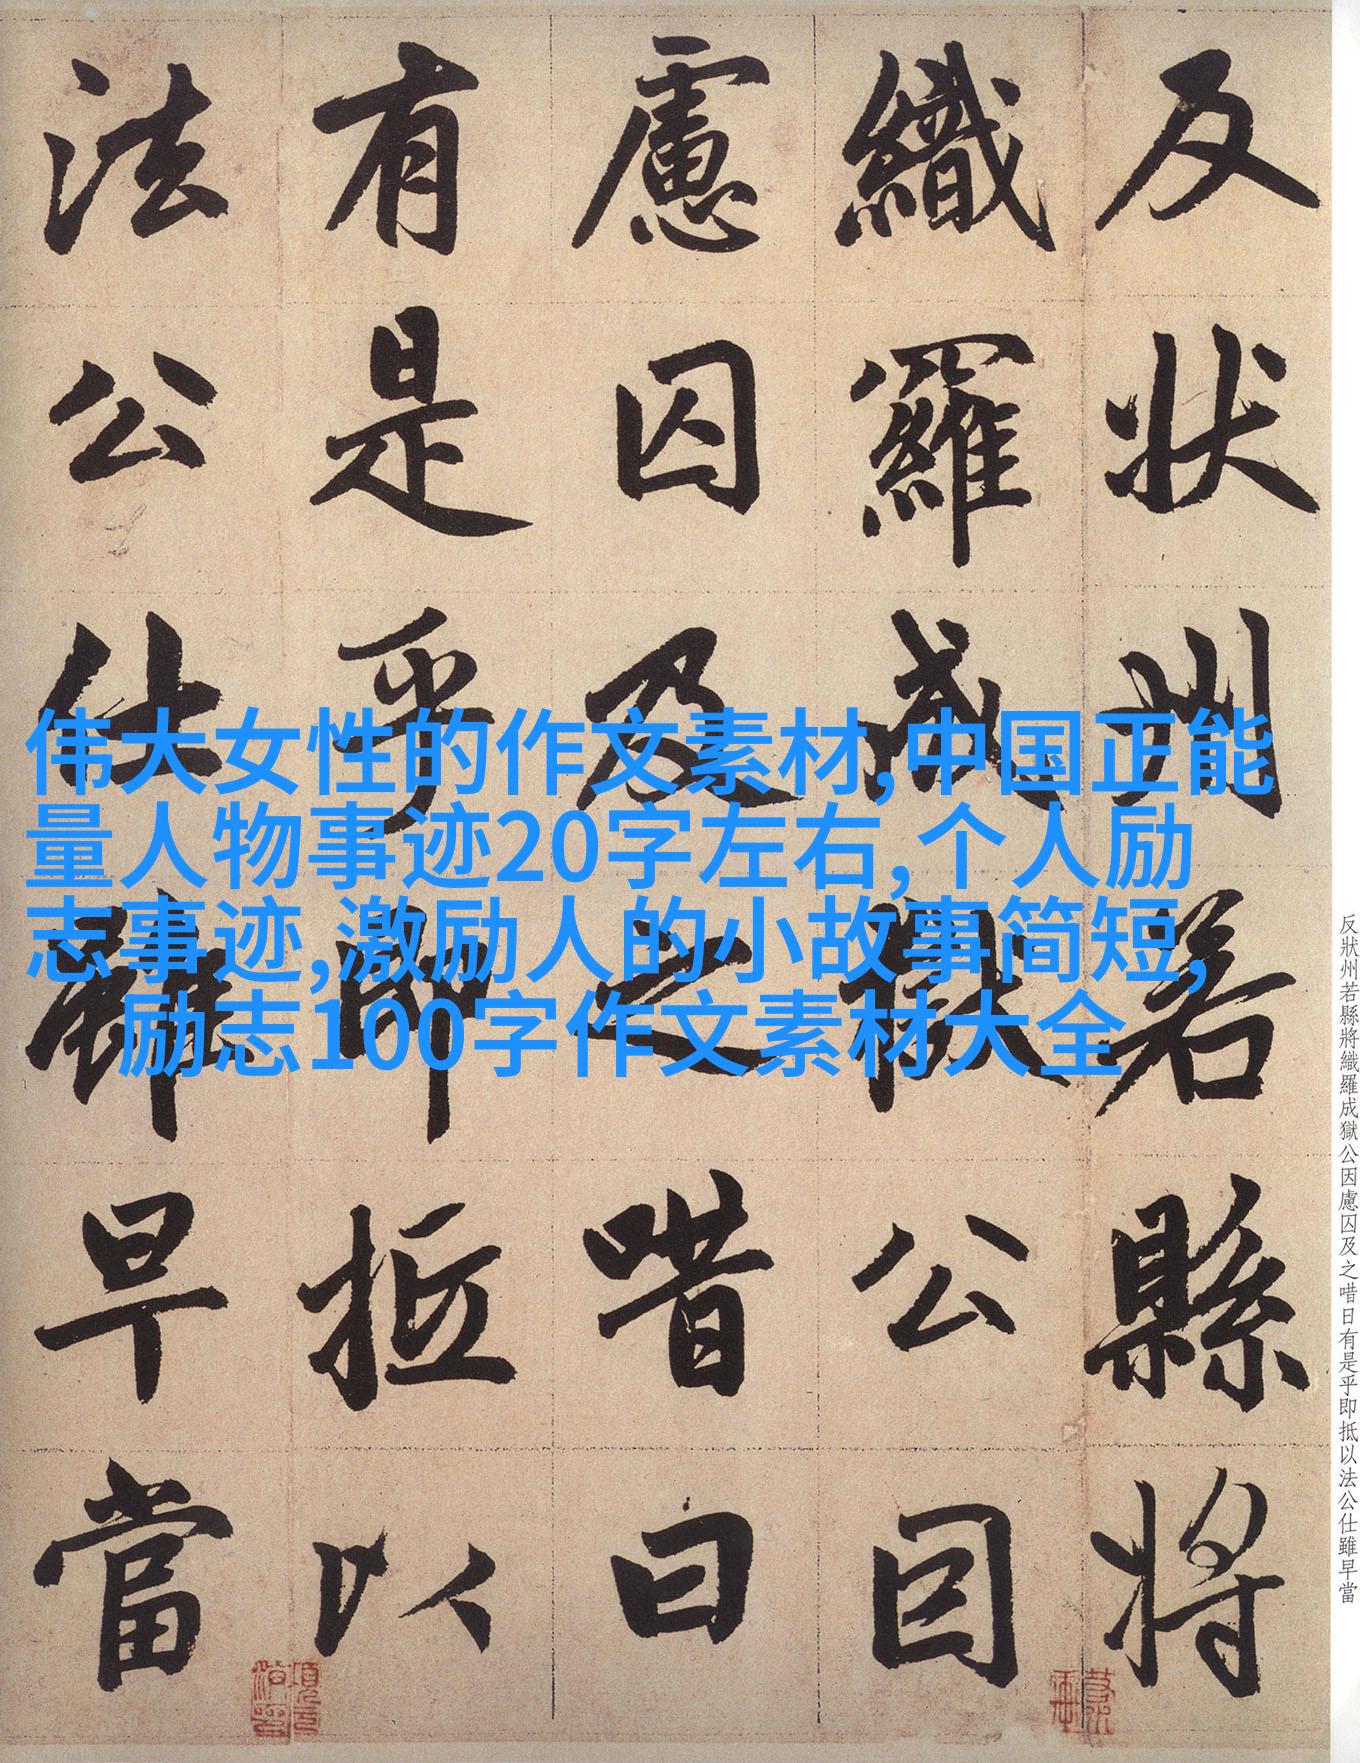 反状州若縣將
織羅成獄公因
慮囚及之唶曰
有是乎即抵以
法公仕雖早當
伟大女性的作文素材,中国正能
量人物事迹20字左右,个人励
志事迹,激励人的小故事简短,
励志100字作文素材大全
反狀州若縣將織羅成獄公因慮囚及之唶日有是乎即抵以法公仕雖早當